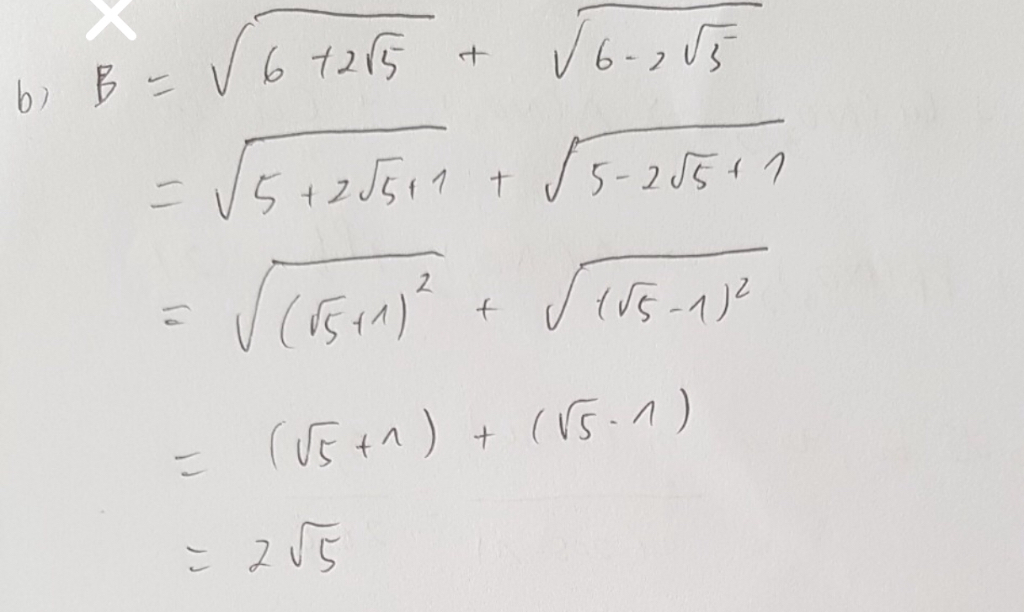 b) B = √(6 + 2√5) + √(6 - 2√5)
= √(5 + 2√5 + 1) + √(5 - 2√5 + 1)
= √((√5 + 1)²) + √((√5 - 1)²)
= (√5 + 1) + (√5 - 1)
= 2√5